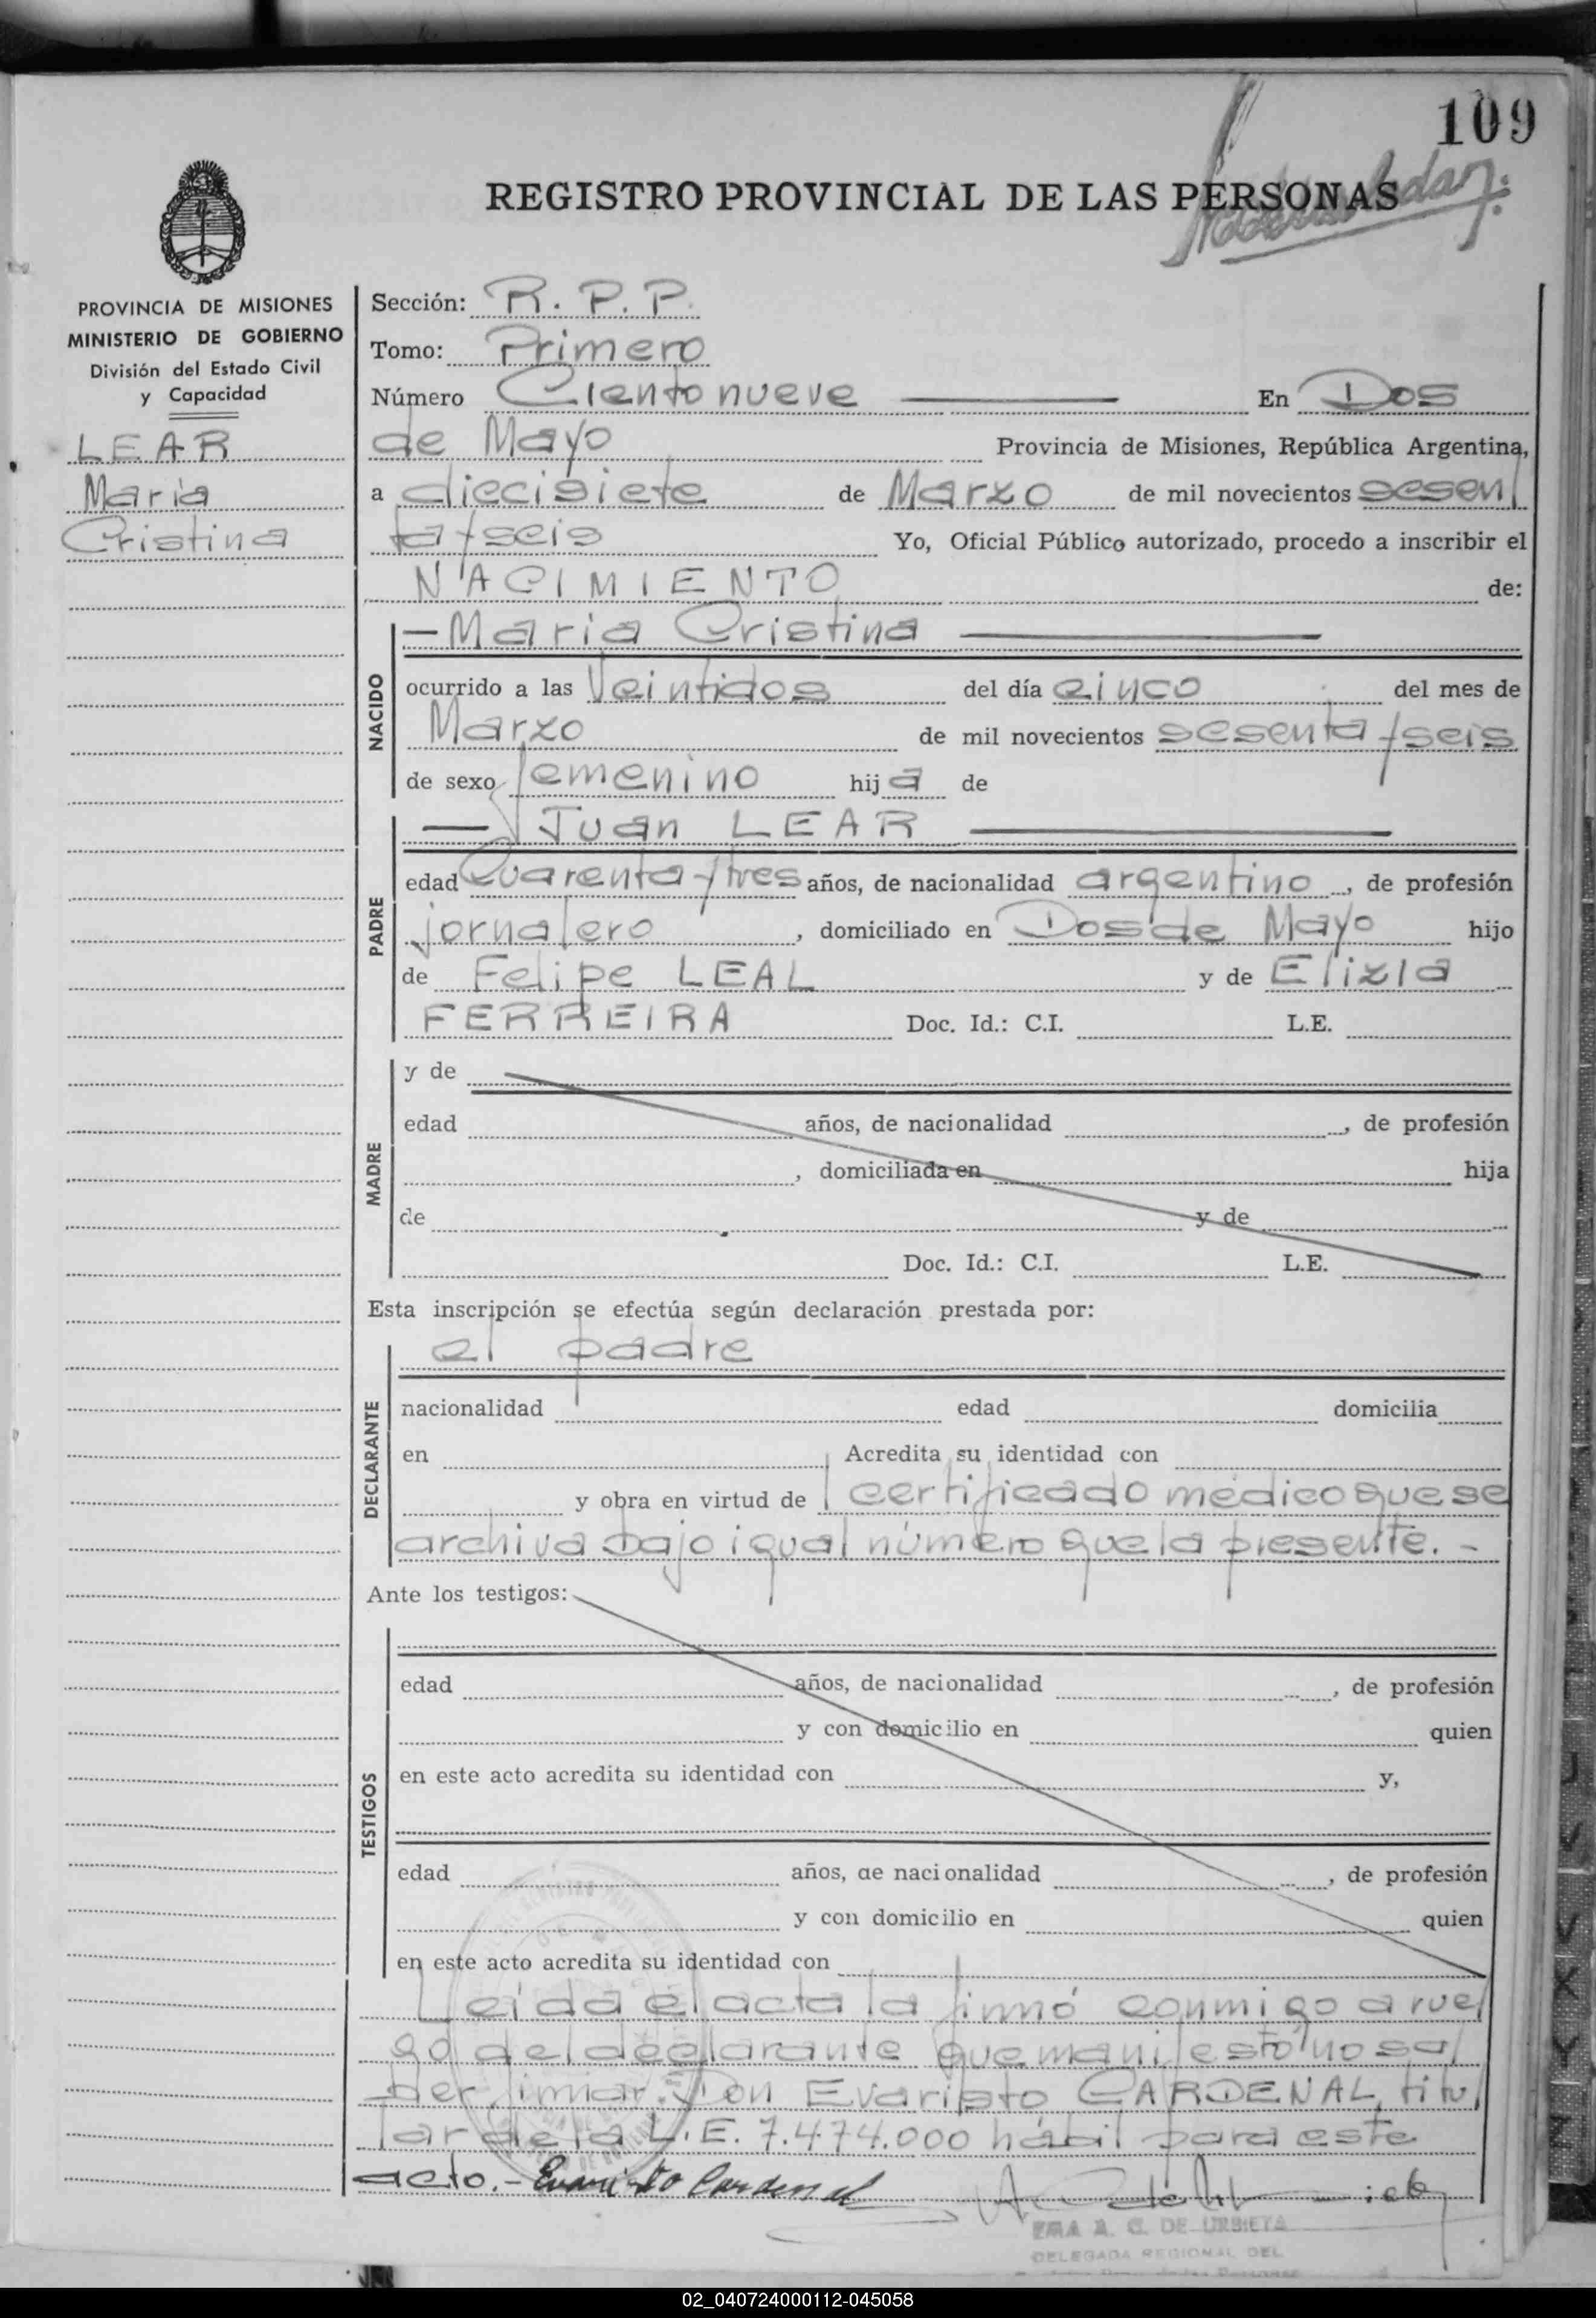 109
REGISTRO PROVINCIAL DE LAS PERSONAS
PROVINCIA DE MISIONES
MINISTERIO DE GOBIERNO
División del Estado Civil
y Capacidad
LEAR
María
Cristina
Sección: R. P. P.
Tomo: Primero
Número Ciento nueve En Dos
de Mayo Provincia de Misiones, República Argentina,
a diecisiete de Marzo de mil novecientos sesen
ta y seis Yo, Oficial Público autorizado, procedo a inscribir el
NACIMIENTO de:
NACIDO
— María Cristina
ocurrido a las Veintidos del día cinco del mes de
Marzo de mil novecientos sesenta y seis
de sexo femenino hija de
PADRE
— Juan LEAR
edad Cuarenta y tres años, de nacionalidad argentino, de profesión
jornalero, domiciliado en Dos de Mayo hijo
de Felipe LEAL y de Elizia
FERREIRA Doc. Id.: C.I. L.E.
MADRE
y de
edad años, de nacionalidad , de profesión
, domiciliada en hija
de y de
Doc. Id.: C.I. L.E.
Esta inscripción se efectúa según declaración prestada por:
DECLARANTE
el padre
nacionalidad edad domicilia
en Acredita su identidad con
y obra en virtud de certificado médico que se
archiva bajo igual número que la presente. -
Ante los testigos:
TESTIGOS
edad años, de nacionalidad , de profesión
y con domicilio en quien
en este acto acredita su identidad con y,
edad años, de nacionalidad , de profesión
y con domicilio en quien
en este acto acredita su identidad con
Leída el acta la firmó conmigo a rue
go del declarante que manifestó no sa
ber firmar. Don Evaristo CARDENAL, titu
lar de la L.E. 7.474.000 hábil para este
acto. - Evaristo Cardenal
EMA A. C. DE URBIETA
DELEGADA REGIONAL DEL
02_040724000112-045058